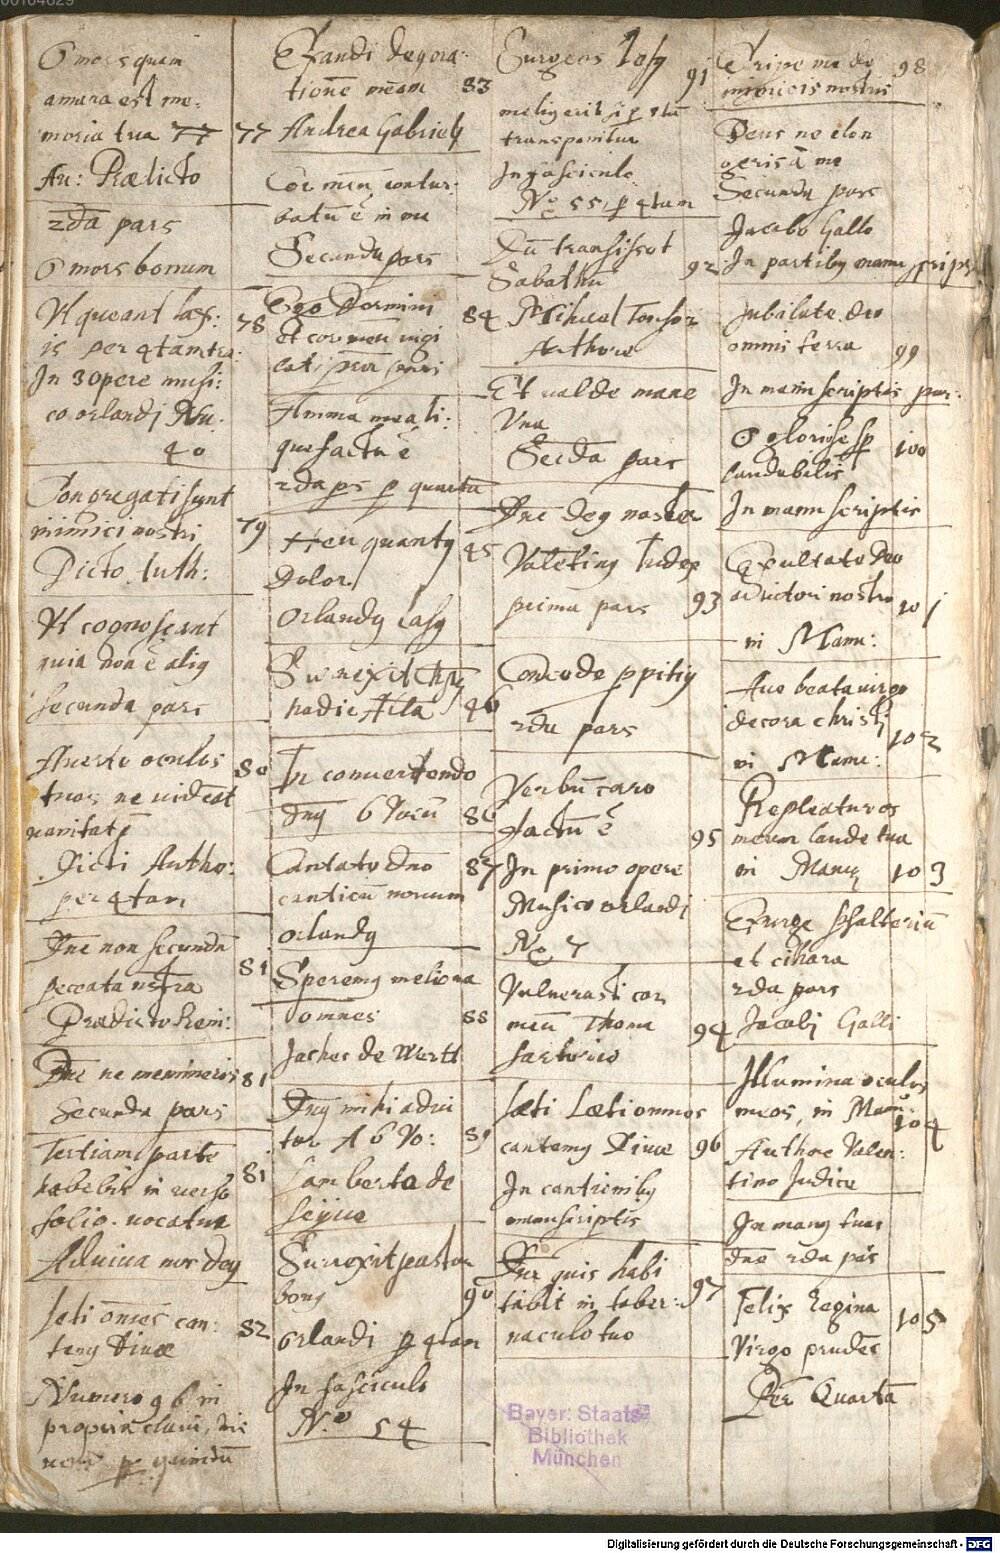 00104629
O mors quam
amara est me:
moria tua 77 77
Au: Prælicto
2da pars
O mors bonum
Ut queant lax: 78
is per 4tam tra:
In 3 opere musi:
co orlandj Nu:
40
Congregati sunt
inimici nostri 79
Dicto Auth:
Ut cognoscant
quia non ē aliq
secunda pars
Auerte oculos 80
tuos ne uideāt
uanitatē
Dicti Autho:
per 4tam
Dne non secundū
peccata nostra 81
Prædicto
Dne ne memineris 81
Secunda pars
Tertiam partē
habebis in uerso 81
folio. uocatur
Adiuua nos deq
Læti omēs can: 82
temq Diuæ
Numero 96 in
propria claui, hic
p quintū
Efandi degra:
tionē mēam 83
Andrea Gabrielj
Cor meū contur:
batū ē in me
Secunda pars
Ego Dormiui 84
et cor meū uigi
lat, pra pars
Anima mea li:
quefactu ē
2da ps p quartā
Heu quantq 45
dolor
Orlandq Lasq
Surexit chrs
hodie Alla 46
In conuertendo
dnq 6 Vocū 86
Cantate dno 87
canticū nouum
orlandq
Speremq meliora
omnes 88
Jaches de Wertt
Dnq mihi adiu
tor A 6 Vo: 89
Lamberto de
Seijue
Surexit pastor
bonq 90
orlandi p 4tam
In fasciculo
No 54
Surgens Jesq 91
meliq erit si p 4tū
transponitur
In fasciculo
No 55, p 4tam
Dū transisset
Sabathū 92
Michael Tonsor
Authore
Et ualde mane
Una
Secda pars
Dne deq noster
Valetinq Judex
prima pars 93
Concede ppitiq
2da pars
Verbū caro
factū ē 95
In primo opere
Musico orlandj
No 7
Vulnerasti cor
meū Thoma 94
sartorio
Læti Lætiomnes
cantemq Diuæ 96
In cantionibq
manuscriptis
Dne quis habi
tabit in taber: 97
naculo tuo
Eripe me de 98
inimicis nostris
Deus ne elon
geris ā me
Secunda pars
Jacobo Gallo
In partibq manu script
Jubilate deo
omnis terra 99
In manuscriptis par:
O gloriose p 100
laudabilis
In manuscriptis
Exultate Deo
adiutori nostro 101
in Manu:
Aue beata uirgo
decora christi 102
in Manu:
Repleatur os
meum laude tua
in Manu 103
Exurge psalteriū
et cithara
2da pars
Jacobj Galli
Illumina oculos
meos, in Manu: 104
Authore Valen:
tino Judice
In manq tuas
dne 2da pās
Felix Regina 105
Virgo prudēs
Per Quartā
Bayer. Staats-
Bibliothek
München
Digitalisierung gefördert durch die Deutsche Forschungsgemeinschaft - DFG